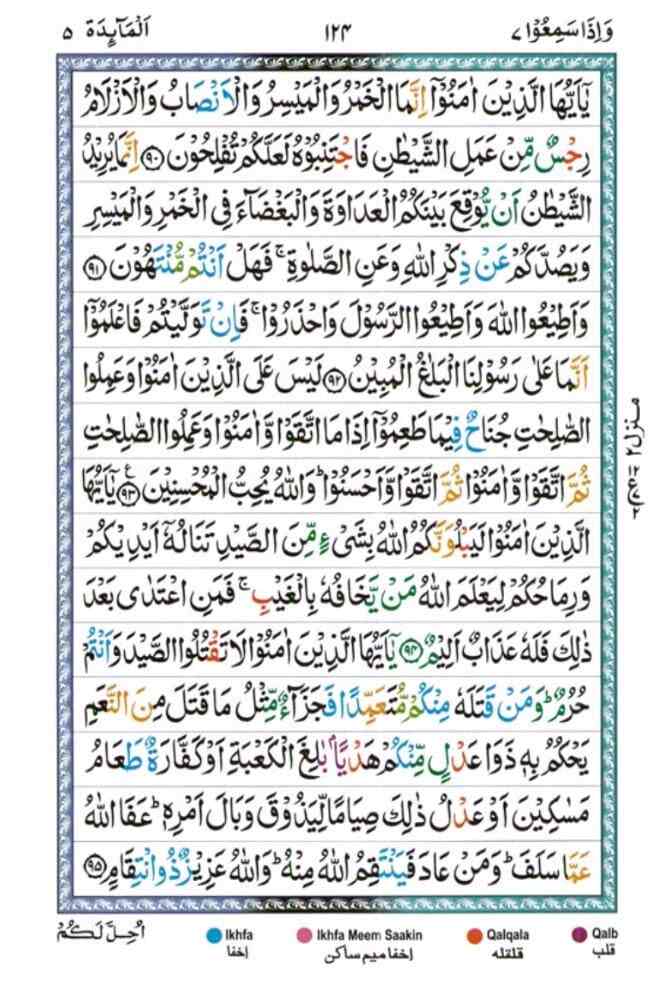 وَاِذَا سَمِعُوْا ٧
١٢٤
اَلْمَآئِدَة ٥
يٰۤاَيُّهَا الَّذِيْنَ اٰمَنُوْۤا اِنَّمَا الْخَمْرُ وَالْمَيْسِرُ وَالْاَنْصَابُ وَالْاَزْلَامُ
رِجْسٌ مِّنْ عَمَلِ الشَّيْطٰنِ فَاجْتَنِبُوْهُ لَعَلَّكُمْ تُفْلِحُوْنَ ﴿٩٠﴾ اِنَّمَا يُرِيْدُ
الشَّيْطٰنُ اَنْ يُّوْقِعَ بَيْنَكُمُ الْعَدَاوَةَ وَالْبَغْضَآءَ فِى الْخَمْرِ وَالْمَيْسِرِ
وَيَصُدَّكُمْ عَنْ ذِكْرِ اللّٰهِ وَعَنِ الصَّلٰوةِ ۚ فَهَلْ اَنْتُمْ مُّنْتَهُوْنَ ﴿٩١﴾
وَاَطِيْعُوا اللّٰهَ وَاَطِيْعُوا الرَّسُوْلَ وَاحْذَرُوْا ۚ فَاِنْ تَوَلَّيْتُمْ فَاعْلَمُوْۤا
اَنَّمَا عَلٰى رَسُوْلِنَا الْبَلٰغُ الْمُبِيْنُ ﴿٩٢﴾ لَيْسَ عَلَى الَّذِيْنَ اٰمَنُوْا وَعَمِلُوا
الصّٰلِحٰتِ جُنَاحٌ فِيْمَا طَعِمُوْۤا اِذَا مَا اتَّقَوْا وَّاٰمَنُوْا وَعَمِلُوا الصّٰلِحٰتِ
ثُمَّ اتَّقَوْا وَّاٰمَنُوْا ثُمَّ اتَّقَوْا وَّاَحْسَنُوْا ؕ وَاللّٰهُ يُحِبُّ الْمُحْسِنِيْنَ ﴿٩٣﴾ۧ يٰۤاَيُّهَا
الَّذِيْنَ اٰمَنُوْا لَيَبْلُوَنَّكُمُ اللّٰهُ بِشَىْءٍ مِّنَ الصَّيْدِ تَنَالُهٗۤ اَيْدِيْكُمْ
وَرِمَاحُكُمْ لِيَعْلَمَ اللّٰهُ مَنْ يَّخَافُهٗ بِالْغَيْبِ ۚ فَمَنِ اعْتَدٰى بَعْدَ
ذٰلِكَ فَلَهٗ عَذَابٌ اَلِيْمٌ ﴿٩٤﴾ يٰۤاَيُّهَا الَّذِيْنَ اٰمَنُوْا لَا تَقْتُلُوا الصَّيْدَ وَاَنْتُمْ
حُرُمٌ ؕ وَمَنْ قَتَلَهٗ مِنْكُمْ مُّتَعَمِّدًا فَجَزَآءٌ مِّثْلُ مَا قَتَلَ مِنَ النَّعَمِ
يَحْكُمُ بِهٖ ذَوَا عَدْلٍ مِّنْكُمْ هَدْيًۢا بٰلِغَ الْكَعْبَةِ اَوْ كَفَّارَةٌ طَعَامُ
مَسٰكِيْنَ اَوْ عَدْلُ ذٰلِكَ صِيَامًا لِّيَذُوْقَ وَبَالَ اَمْرِهٖ ؕ عَفَا اللّٰهُ
عَمَّا سَلَفَ ؕ وَمَنْ عَادَ فَيَنْتَقِمُ اللّٰهُ مِنْهُ ؕ وَاللّٰهُ عَزِيْزٌ ذُو انْتِقَامٍ ﴿٩٥﴾
منزل ٢
اُحِلَّ لَكُمْ
Ikhfa
اِخفا
Ikhfa Meem Saakin
اِخفا میم ساکن
Qalqala
قلقله
Qalb
قلب